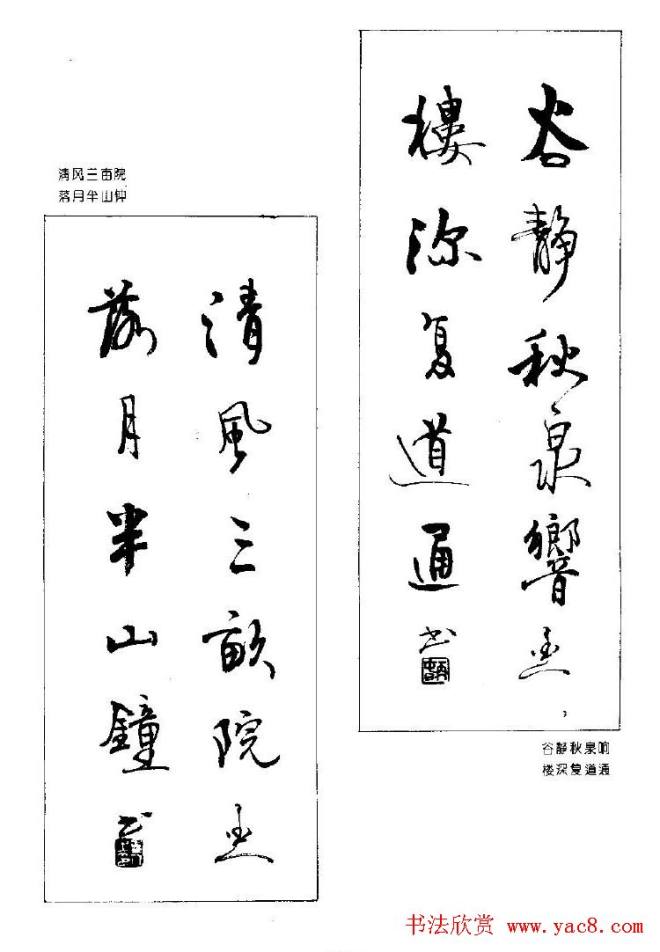 谷静秋泉響
樓深复道通 书
谷静秋泉响
楼深复道通
清风三亩院
落月半山钟
清風三畝院
落月半山鐘 书
书法欣赏 www.yac8.com